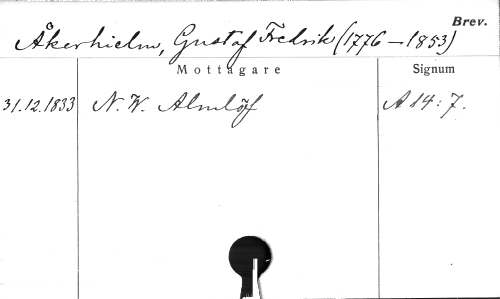 Brev.
Åkerhielm, Gustaf Fredrik (1776–1853)
Mottagare Signum
31.12.1833 N. W. Almlöf A 14: 7.